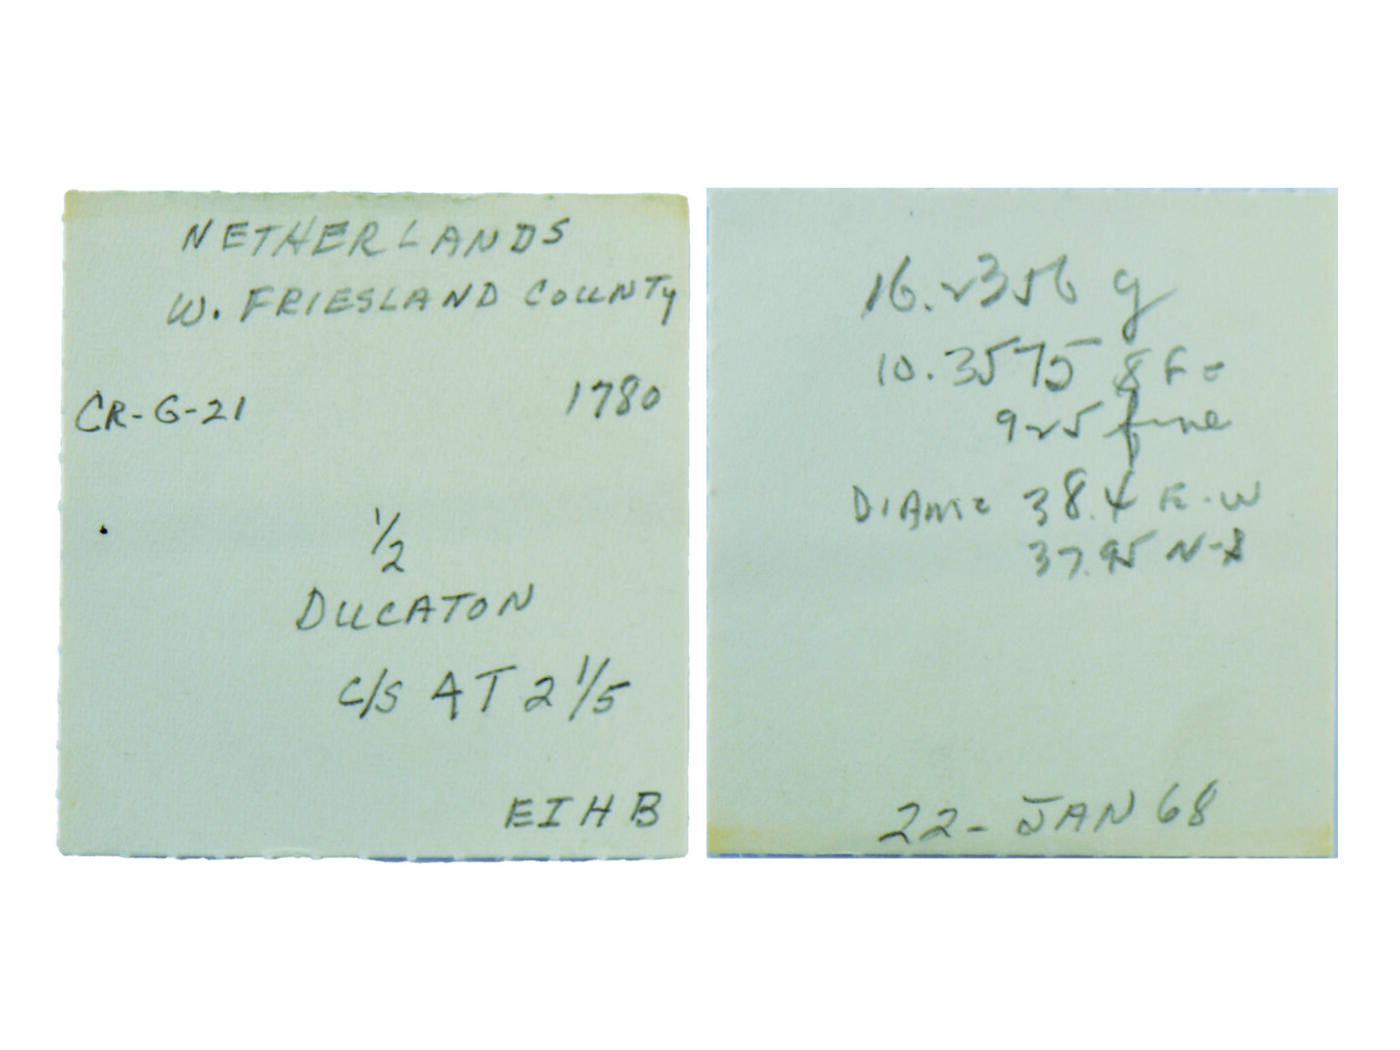 NETHERLANDS
W. FRIESLAND COUNTY
CR-G-21 1780
1/2
DUCATON
C/S AT 2 1/5
EIHB
16.2356 g
10.3575
925 fine
38.4 E-W
37.95 N-S
22-JAN 68